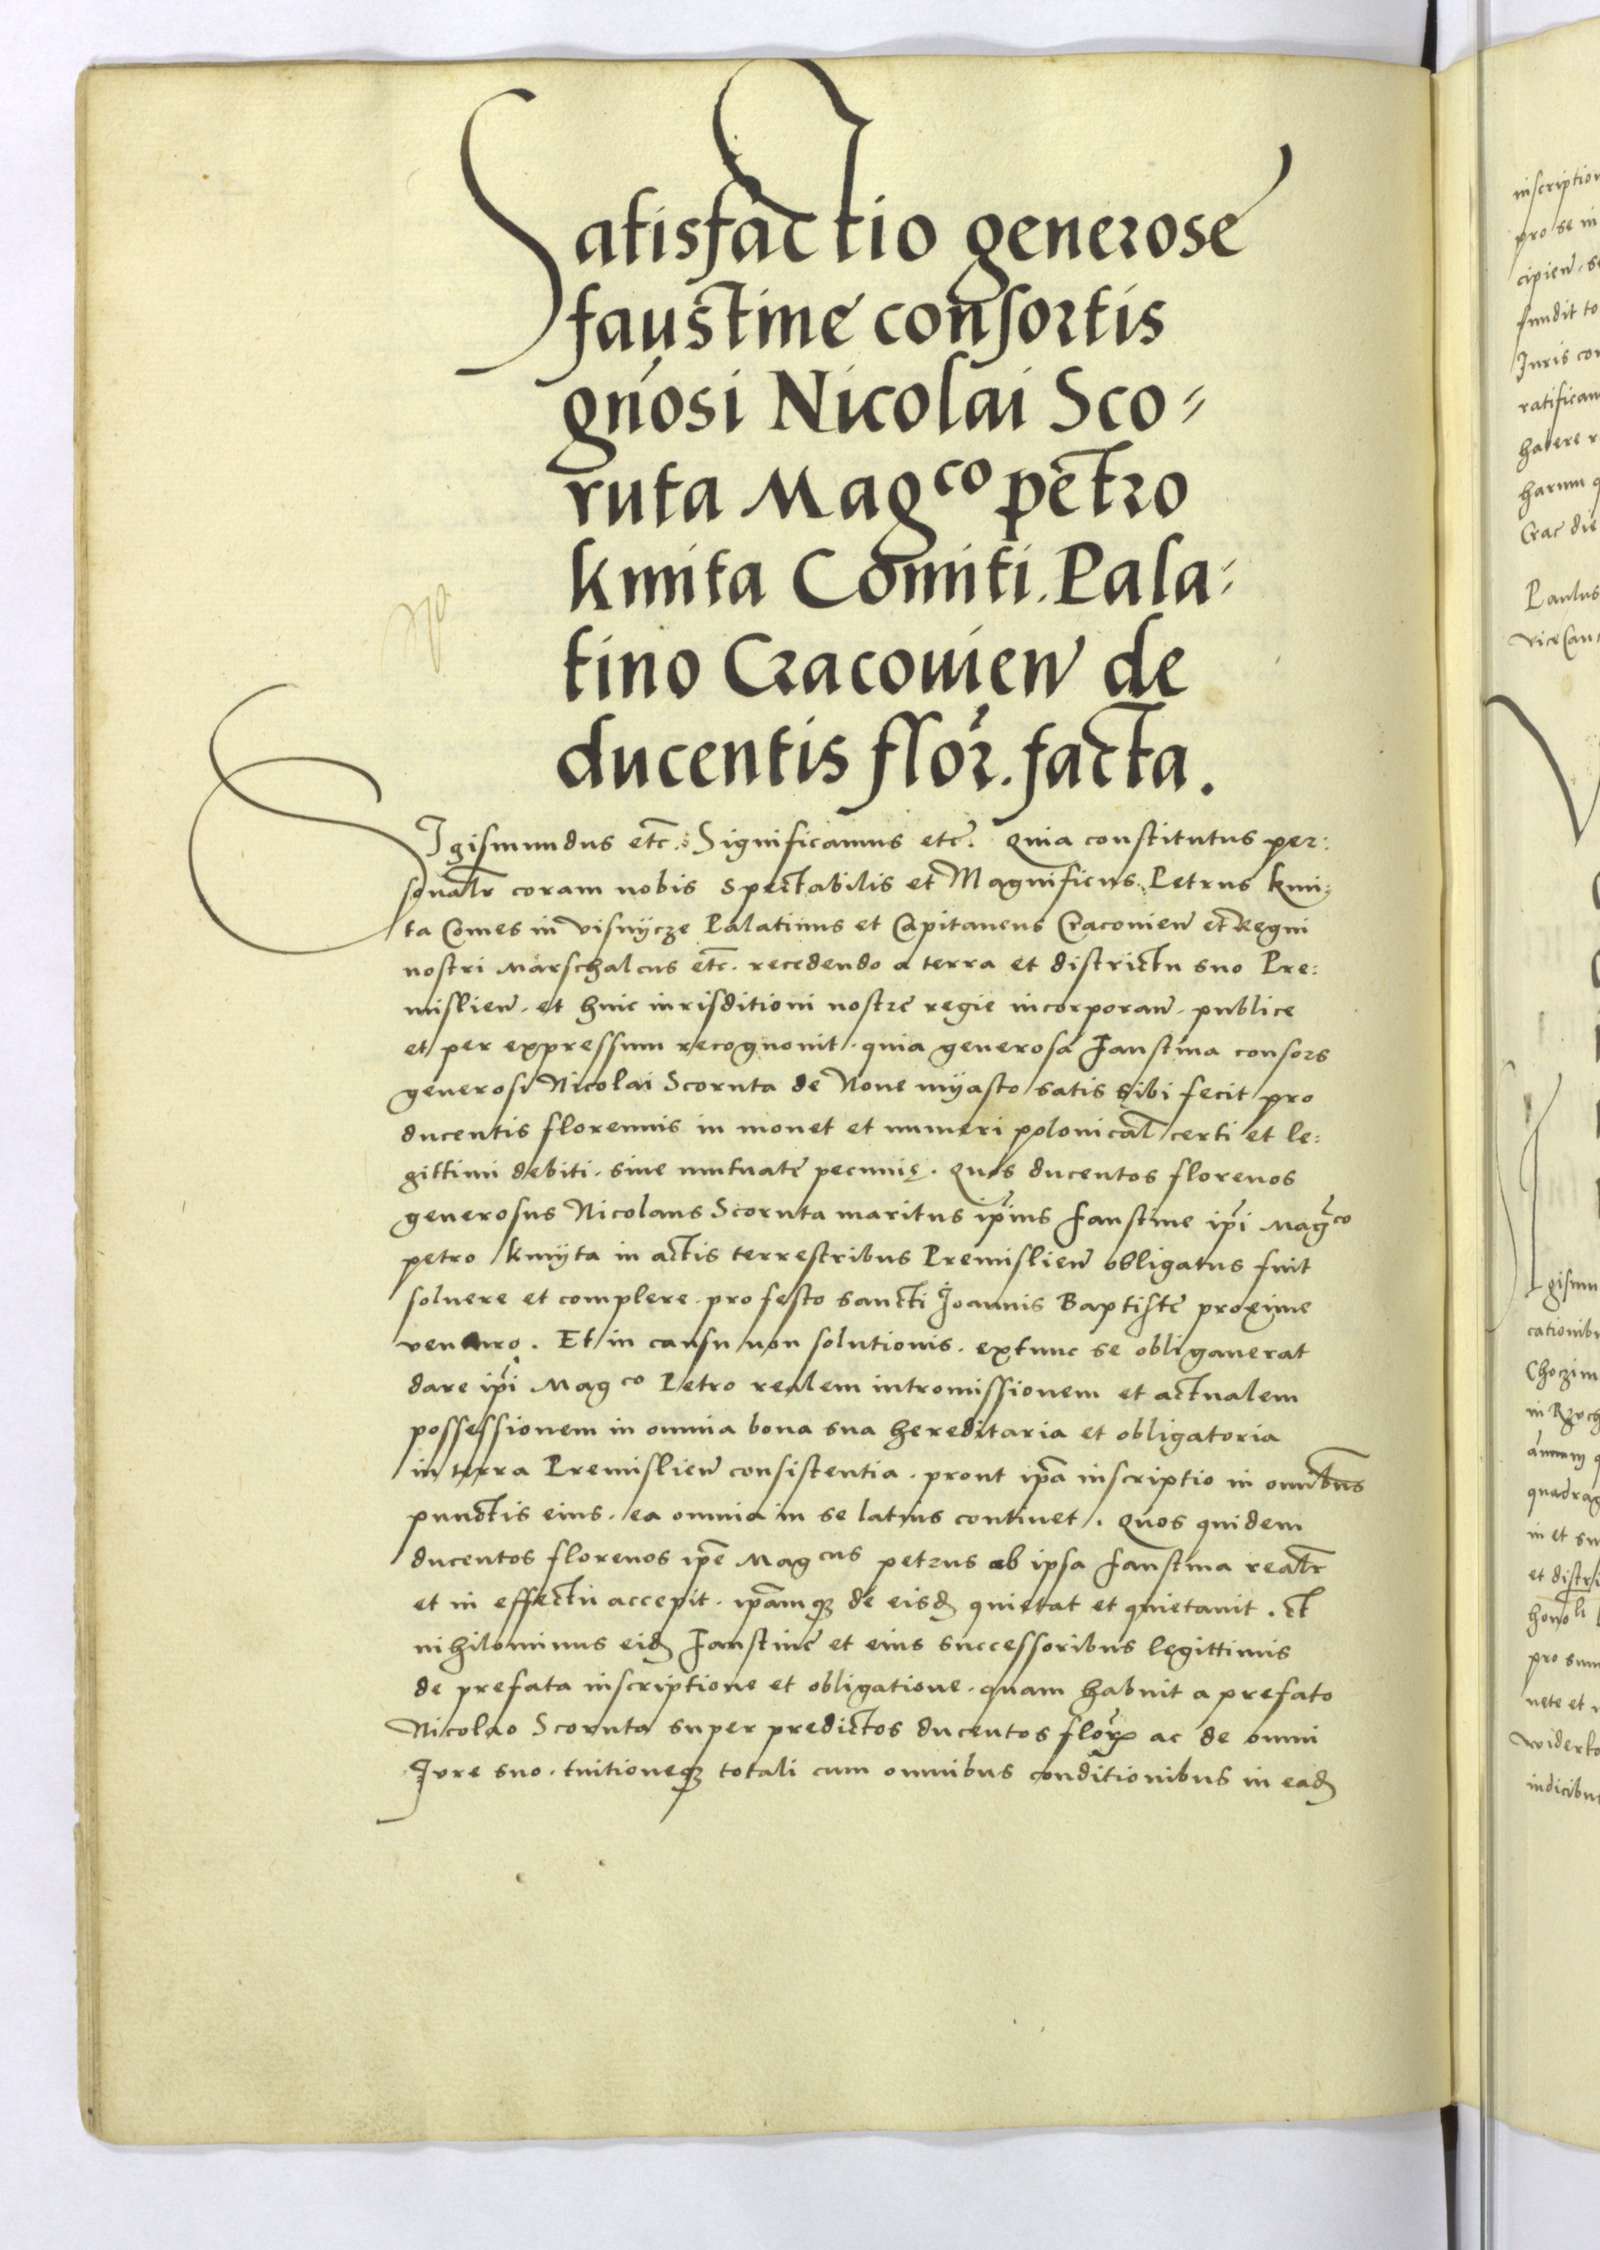 Satisfactio generose
faustine consortis
gnosi Nicolai Sco-
ruta Magco petro
kmita Comiti. Pala-
tino Cracouien de
ducentis flor. facta.
Sigismundus etc. Significamus etc. Quia constitutus per:
sonalr coram nobis spectabilis et Magnificus Petrus kmi:
ta Comes in visnycze Palatinus et Capitaneus Cracouien et Regni
nostri Marschalcus etc. recedendo a terra et districtu suo Pre:
mislien. et huic iurisditioni nostre regie incorporan. publice
et per expressum recognouit. quia generosa Faustina consors
generosi Nicolai Scoruta de Noue myasto satis sibi fecit pro
ducentis florennis in monet et numeri polonical certi et le:
gittimi debiti. siue mutuate pecunię. Quos ducentos florenos
generosus Nicolaus Scoruta maritus ipius faustine ipi Magco
petro kmyta in actis terrestribus Premislien obligatus fuit
soluere et complere. pro festo sancti Joannis Baptiste proxime
venturo. Et in causu non solutionis. extunc se obligauerat
dare ipi Magco Petro realem intromissionem et actualem
possessionem in omnia bona sua hereditaria et obligatoria
in terra Premislien consistentia. prout ipa inscriptio in omnibus
punctis eius. ea omnia in se latius continet. Quos quidem
ducentos florenos ipe Magcus petrus ab ipsa faustina realr
et in effectu accepit. ipamq de eisd quietat et quietauit. et
nihilominus eid Faustine et eius successoribus legittimis
de prefata inscriptione et obligatione. quam habuit a prefato
Nicolao Scoruta super predictos ducentos flor ac de omni
Jure suo. tuitioneq totali cum omnibus conditionibus in ead